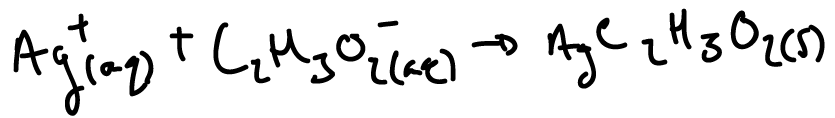 Ag⁺(aq) + C₂H₃O₂⁻(aq) → AgC₂H₃O₂(s)